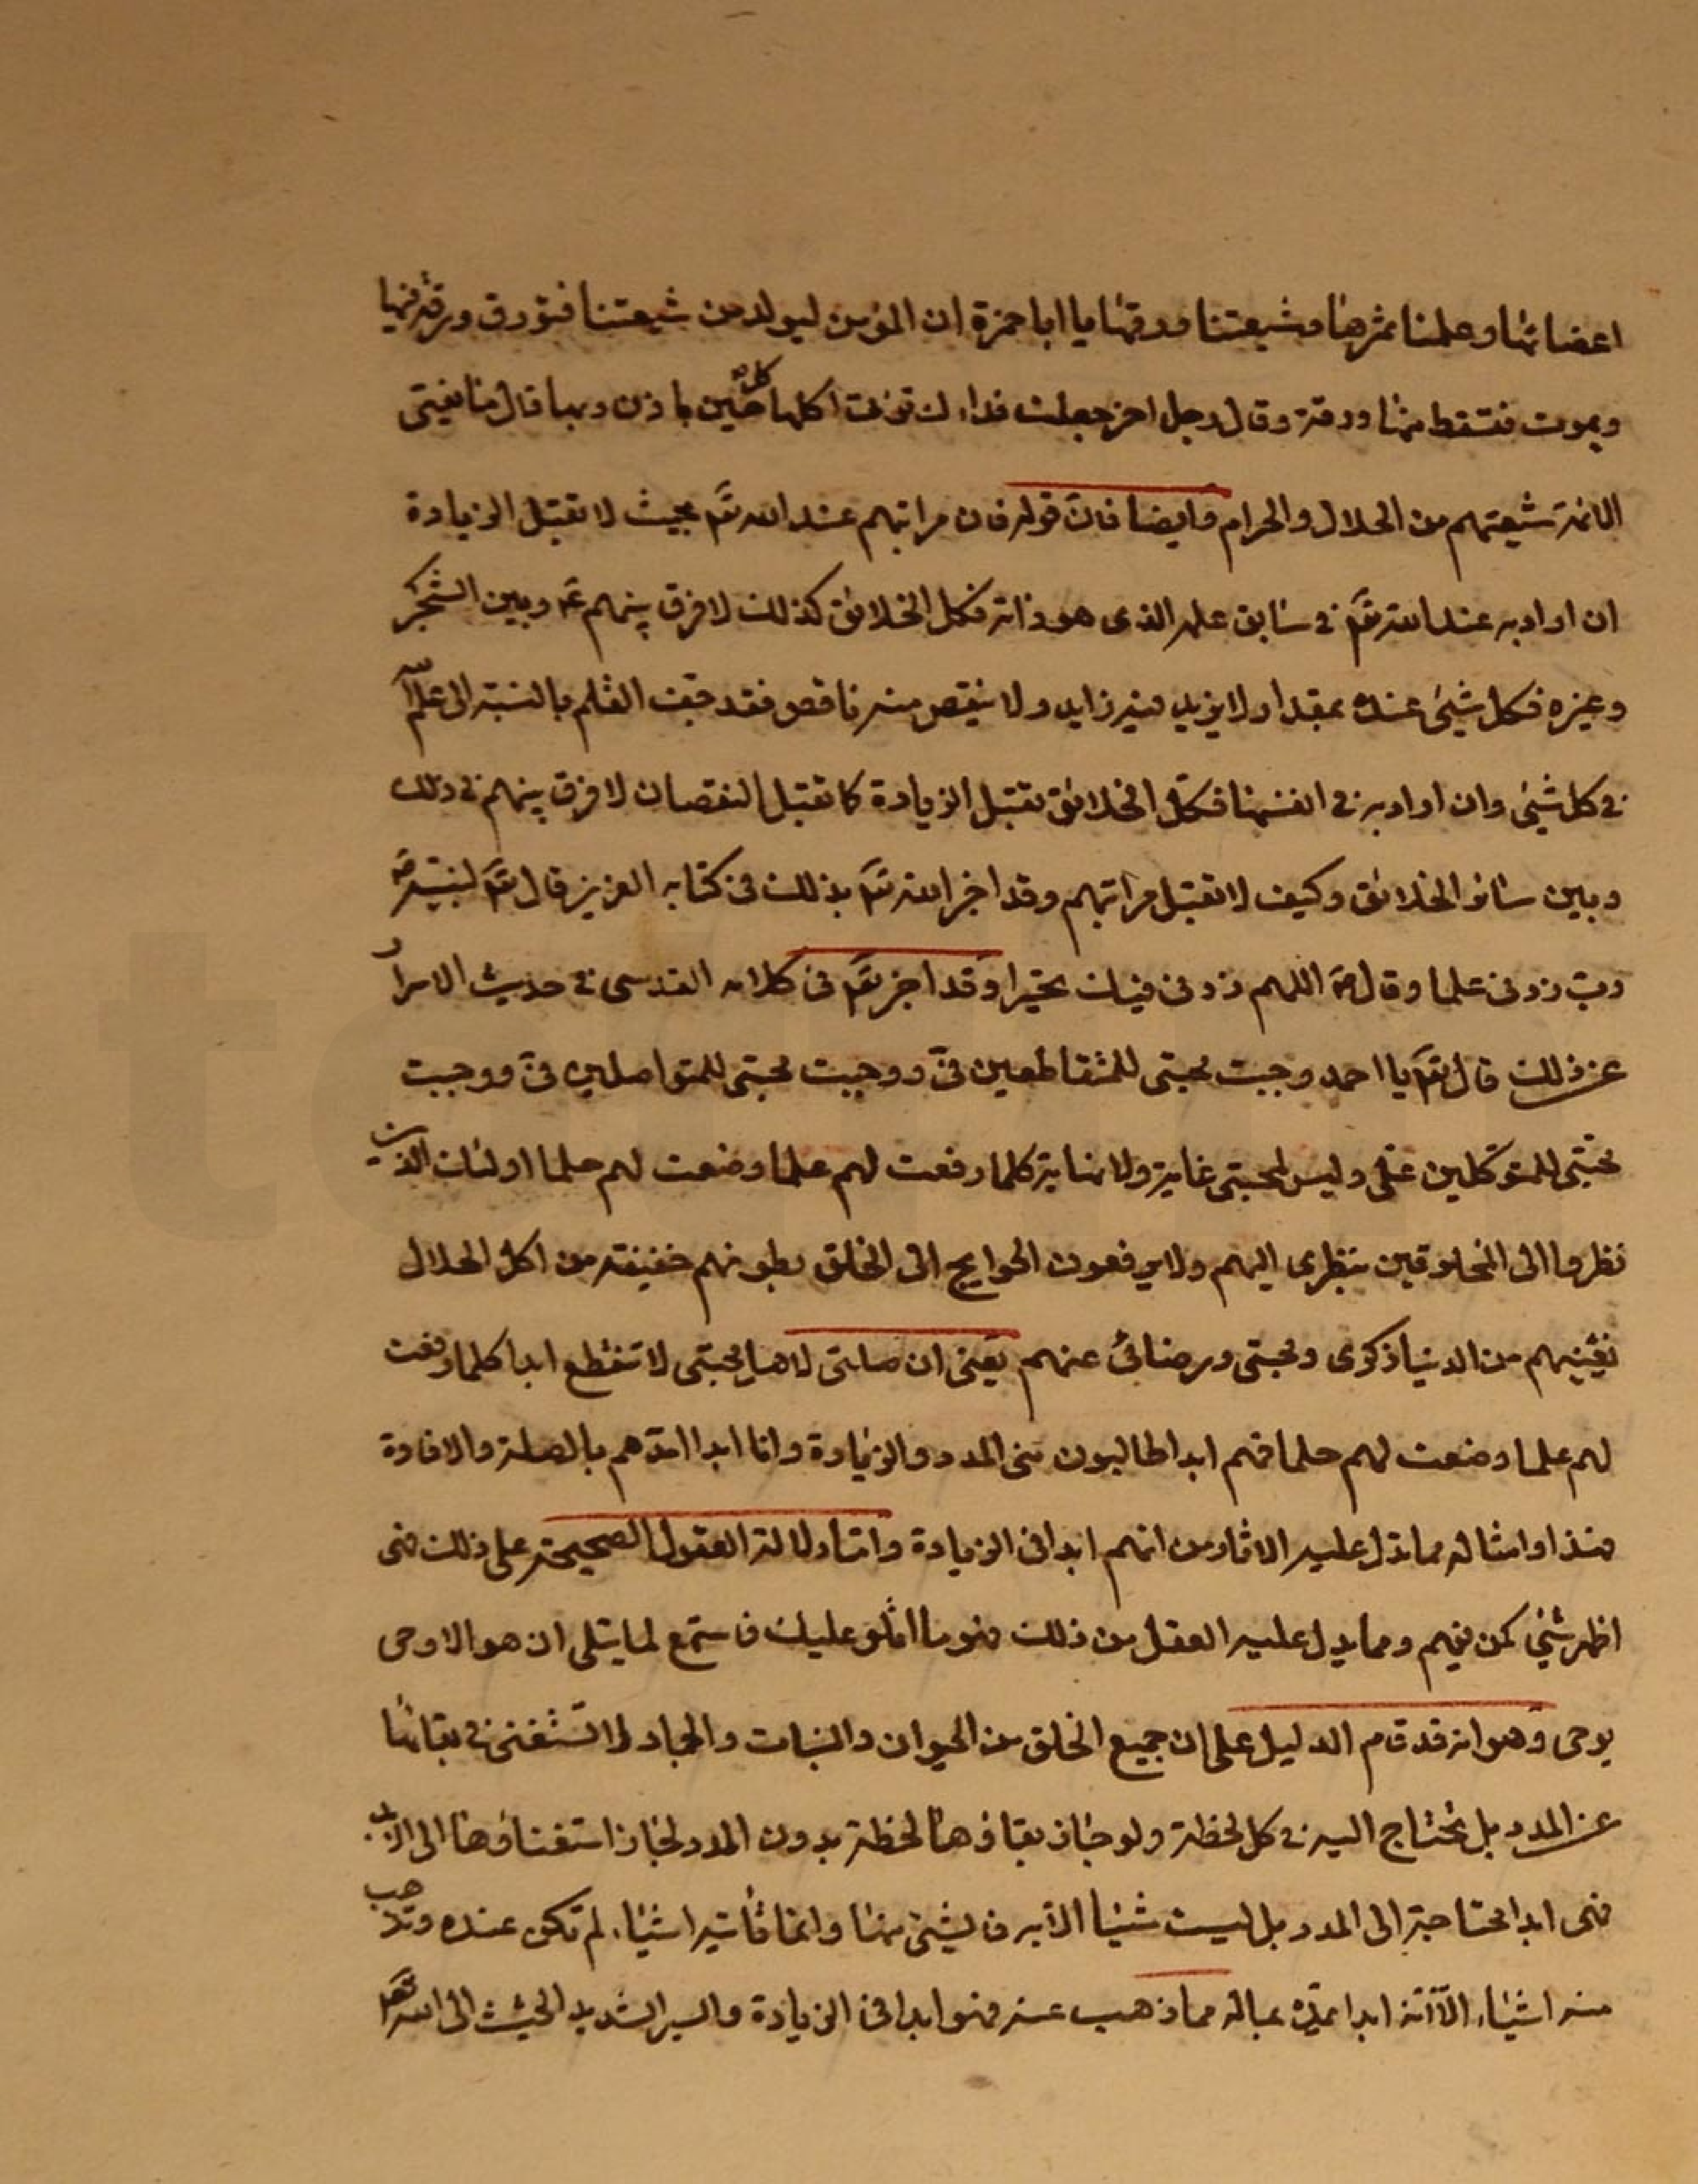 اعضائها وعلمنا ثمرها وشيعتنا ورقها يا ابا حمزة ان المؤمن ليولد من شيعتنا فتورق ورقة فيها
ويموت فتسقط منها ورقة وقال رجل اخر جعلت فداك تؤتى اكلها كل حين باذن ربها قال ما يفتى
الائمة شيعتهم من الحلال والحرام وايضا فان قوله فان مراتبهم عند الله تع بحيث لا تقبل الزيادة
ان اراد به عند الله تع فى سابق علمه الذى هو ذاته فكل الخلائق كذلك لا فرق بينهم ع وبين الشجر
وغيره فكل شئ عنده بمقدار لا يزيد فيه زايد ولا ينقص منه ناقص فقد جف القلم بالنسبة الى علم الله
فى كل شئ وان اراد به فى انفسها فكل الخلائق تقبل الزيادة كما تقبل النقصان لا فرق بينهم فى ذلك
وبين سائر الخلائق وكيف لا تقبل مراتبهم وقد اخبر الله تع بذلك فى كتابه العزيز قال تع لنبيه ص
رب زدنى علما وقال ص اللهم زدنى فيك تحيرا وقد اخبر تع فى كلامه القدسى فى حديث الاسرا
عن ذلك قال تع يا احمد وجبت محبتى للمتقاطعين فىّ ووجبت محبتى للمتواصلين فىّ ووجبت
محبتى للمتوكلين علىّ وليس لمحبتى غاية ولا نهاية كلما رفعت لهم علما وضعت لهم حلما اولئك الذين
نظروا الى المخلوقين بنظرى اليهم ولا يرفعون الحوايج الى الخلق بطونهم خفيفة من اكل الحلال
نعيمهم من الدنيا ذكرى ومحبتى ورضائى عنهم يعنى ان صلتى لاهل محبتى لا تنقطع ابدا كلما رفعت
لهم علما وضعت لهم حلما فهم ابدا طالبون منى المدد والزيادة وانا ابدا امدهم بالصلة والافادة
فهذا وامثاله مما تدل عليه الاثار من انهم ابدا فى الزيادة وامّا دلالة العقول الصحيحة على ذلك فهى
اظهر شئ كمن فيهم ومما يدل عليه العقل من ذلك فهو ما اتلو عليك فاستمع لما يتلى ان هو الا وحى
يوحى وهو انه قد قام الدليل على ان جميع الخلق من الحيوان والنبات والجماد لا تستغنى فى بقائها
عن المدد بل تحتاج اليه فى كل لحظة ولو جاز بقاؤها لحظة بدون المدد لجاز استغناؤها الى الابد
فهى ابدا محتاجة الى المدد بل ليست شيئا الا به فالشئ منها وانما تأتيه اشياء لم تكن عنده وتذهب
منه اشياء الا انه ابدا بما له مما ذهب عنه فهو ابدا فى الزيادة والسير الشديد الحثيث الى الله تع